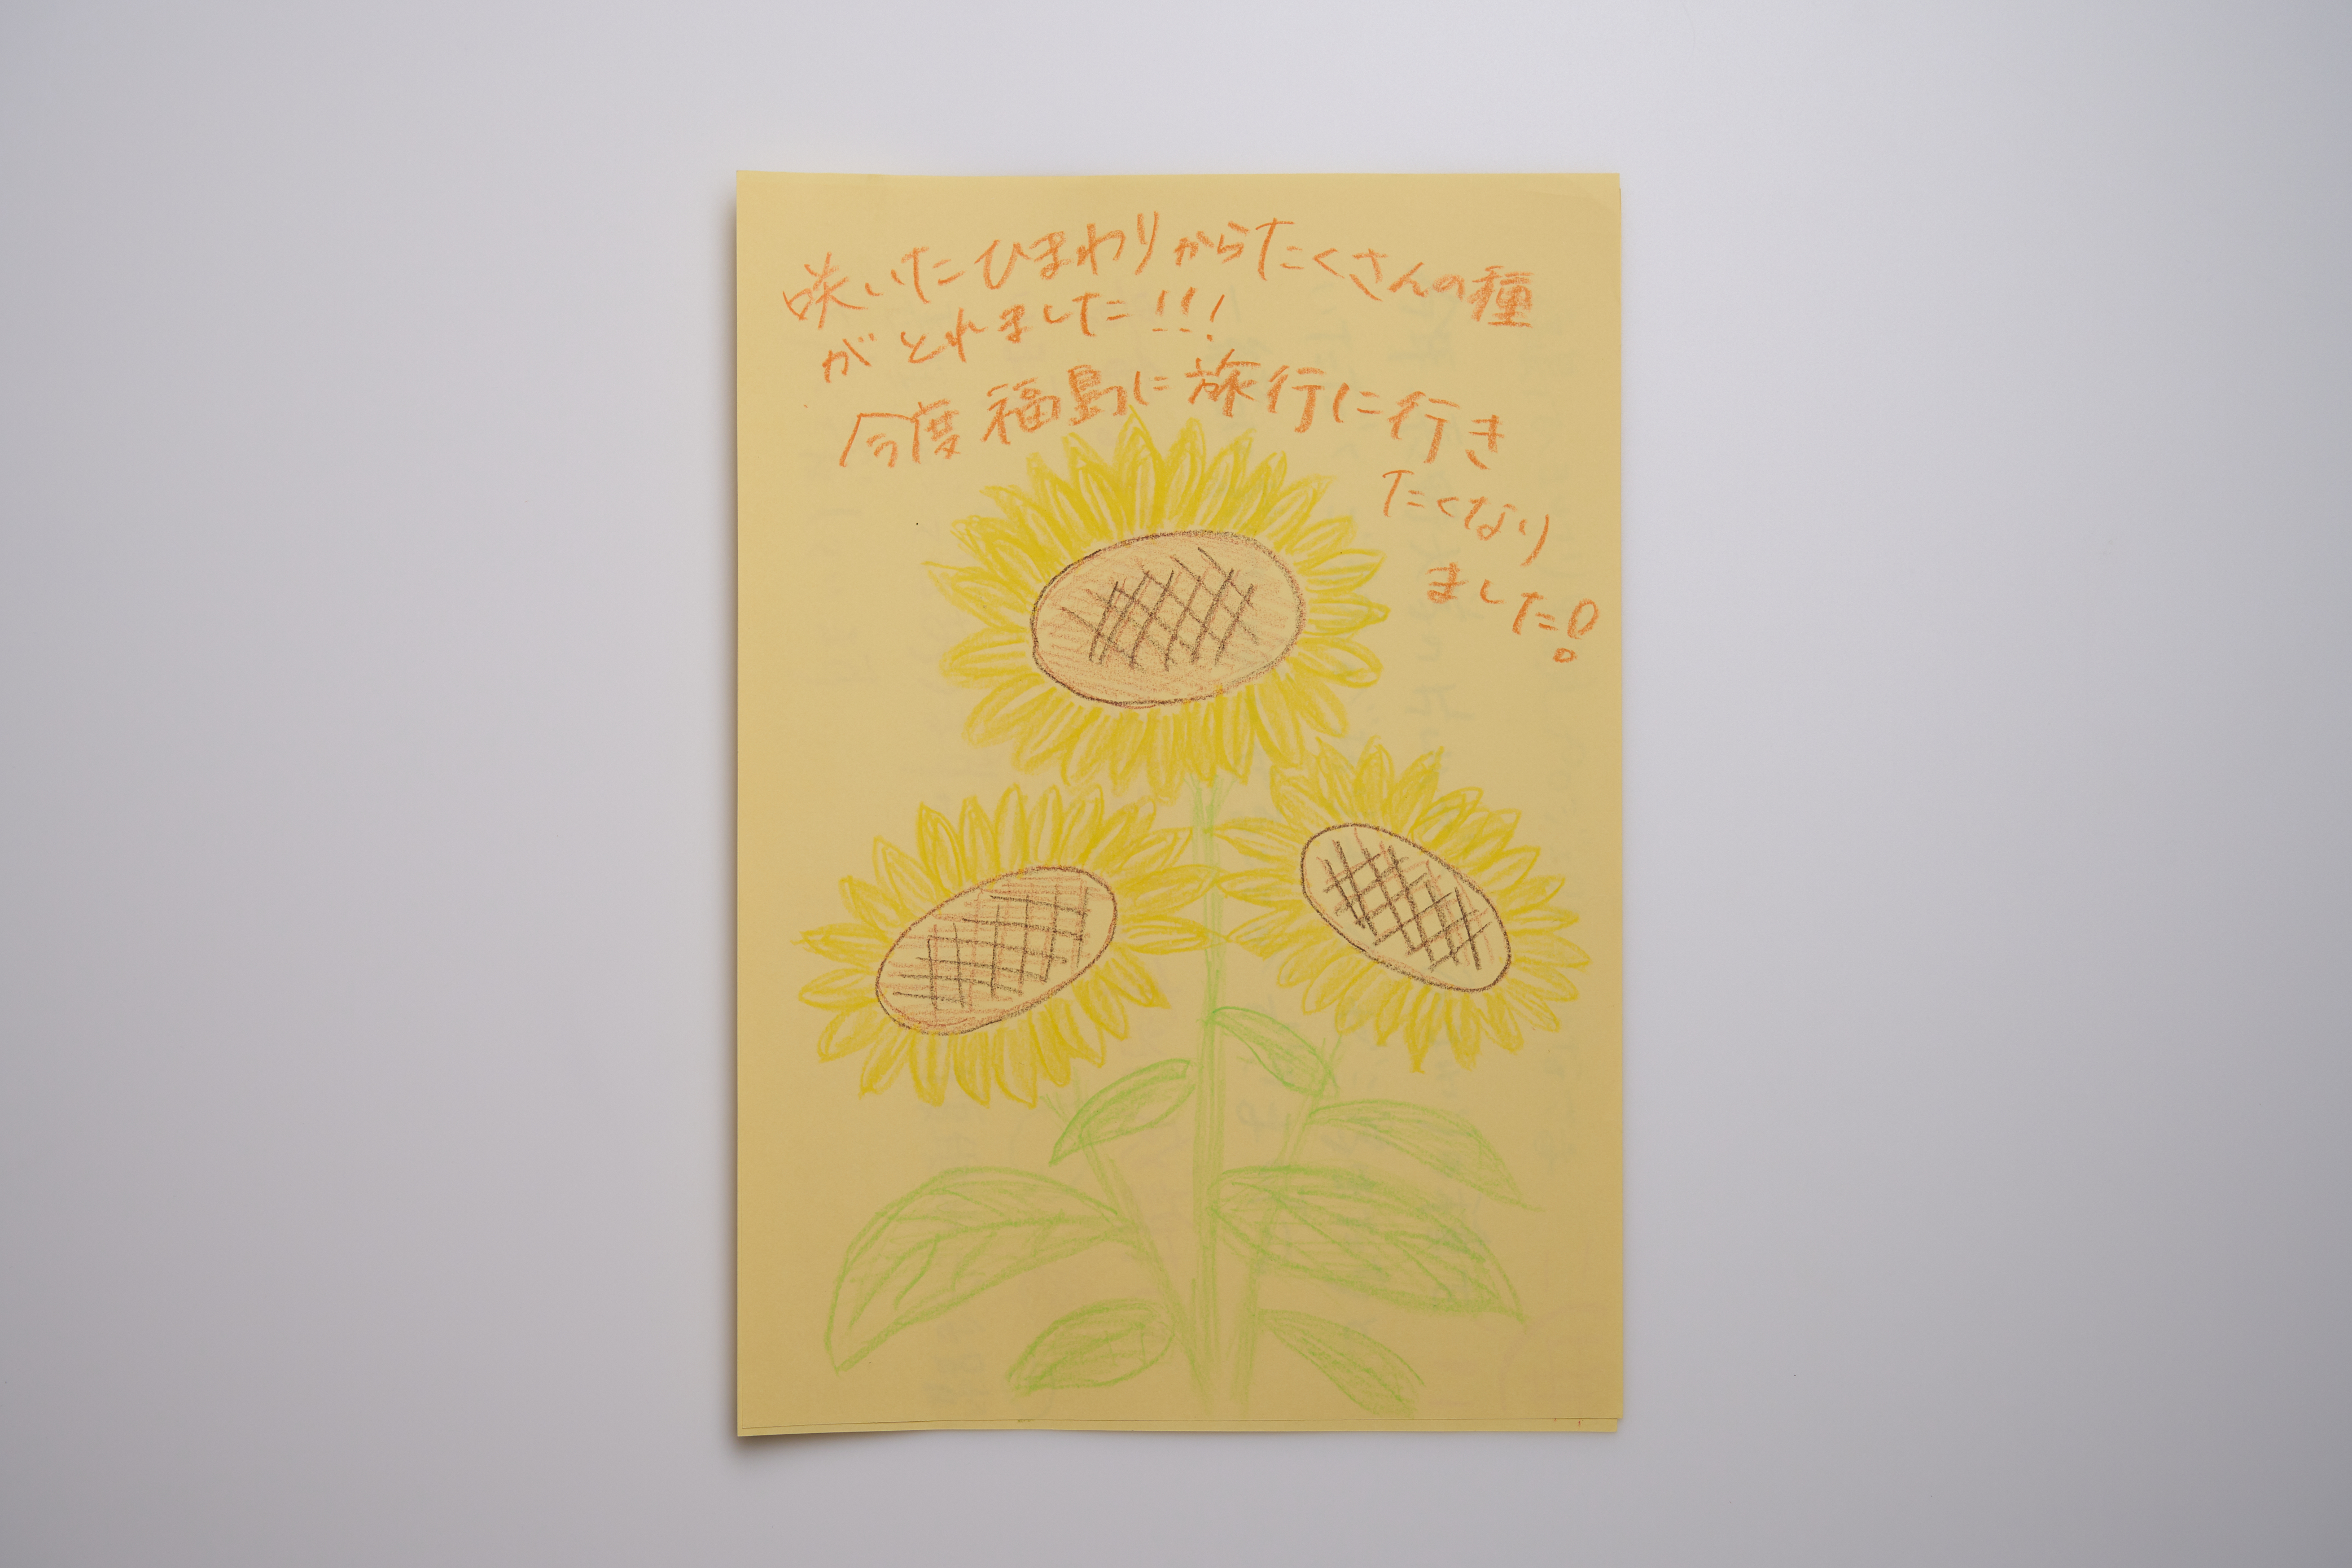 咲いたひまわりからたくさんの種
がとれました!!!
今度福島に旅行に行き
たくなり
ました!